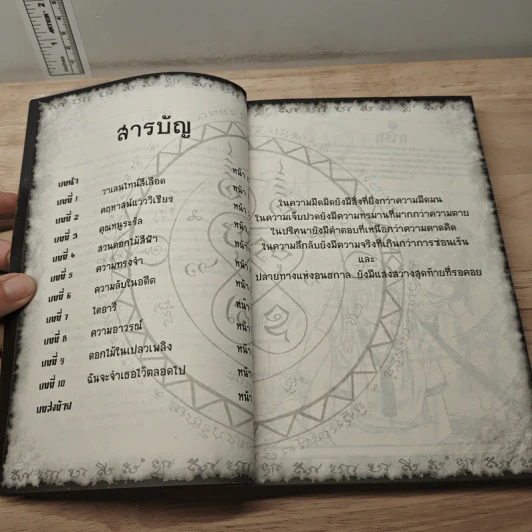 สารบัญ
บทนำ หน้า
บทที่ 1 วาเลนไทน์สีเลือด หน้า
บทที่ 2 คฤหาสน์แวววิเชียร หน้า
บทที่ 3 คุณหนูระริล หน้า
บทที่ 4 สวนดอกไม้สีฟ้า หน้า
บทที่ 5 ความทรงจำ หน้า
บทที่ 6 ความลับในอดีต หน้า
บทที่ 7 ไดอารี่ หน้า
บทที่ 8 ความอาวรณ์ หน้า
บทที่ 9 ดอกไม้ในเปลวเพลิง หน้า
บทที่ 10 ฉันจะจำเธอไว้ตลอดไป หน้า
บทส่งท้าย หน้า
ในความมืดมิดยังมีสิ่งที่ยิ่งกว่าความมืดมน
ในความเจ็บปวดยังมีความทรมานที่มากกว่าความตาย
ในปริศนายังมีคำตอบที่เหนือกว่าความคาดคิด
ในความลึกลับยังมีความจริงที่เกินกว่าการซ่อนเร้น
และ
ปลายทางแห่งอนธกาล...ยังมีแสงสว่างสุดท้ายที่รอคอย